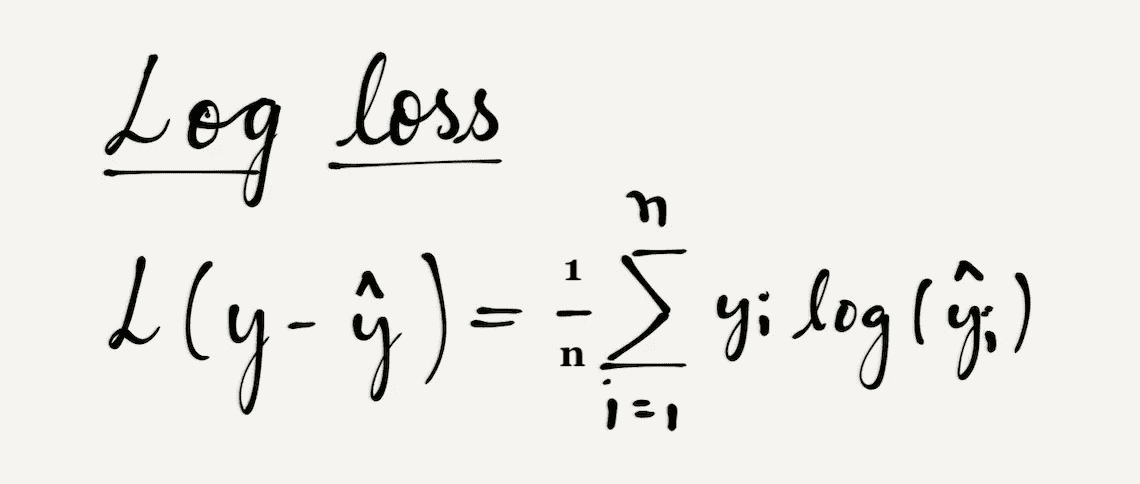 Log loss
L(y - ŷ) = 1/n ∑_{i=1}^{n} y_i log(ŷ_i)